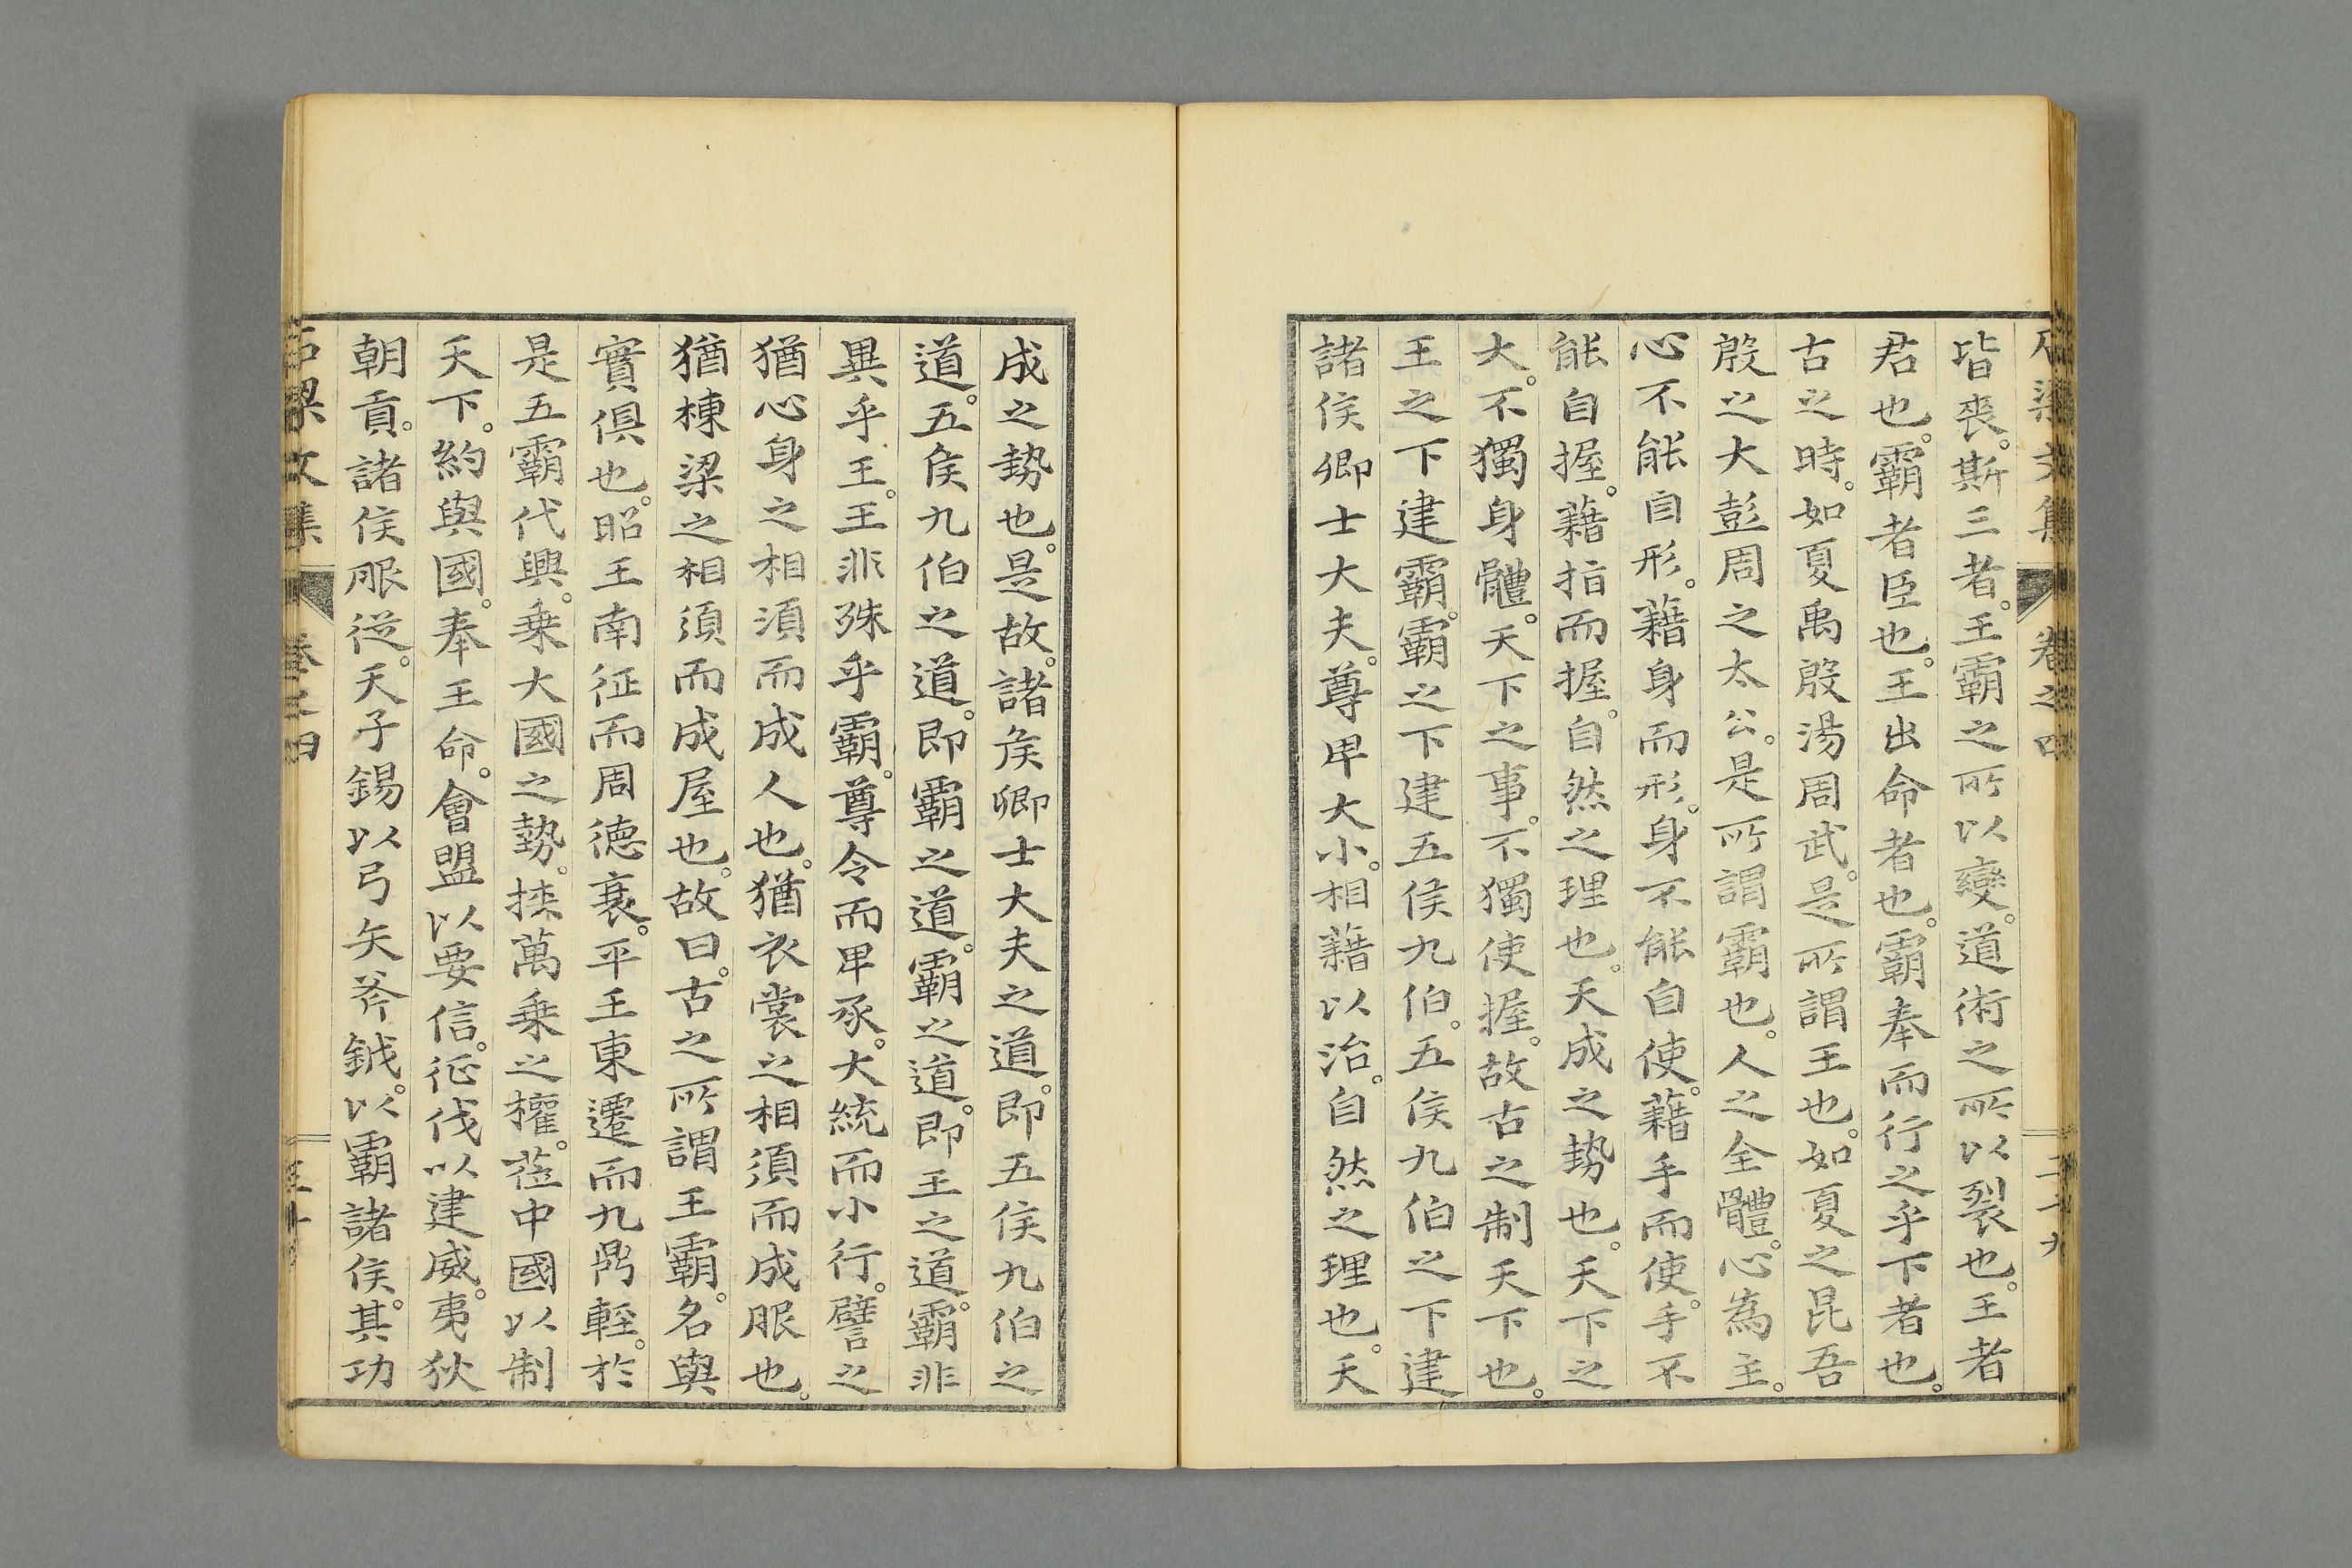 石梁文集 卷之四 二十九
皆喪。斯三者。王霸之所以變。道術之所以裂也。王者
君也。霸者臣也。王出命者也。霸奉而行之乎下者也。
古之時。如夏禹殷湯周武。是所謂王也。如夏之昆吾
殷之大彭周之太公。是所謂霸也。人之全體。心為主。
心不能自形。藉身而形。身不能自使。藉手而使。手不
能自握。藉指而握。自然之理也。天成之勢也。天下之
大。不獨身體。天下之事。不獨使握。故古之制天下也。
王之下建霸。霸之下建五侯九伯。五侯九伯之下建
諸侯卿士大夫。尊卑大小。相藉以治。自然之理也。天
成之勢也。是故。諸侯卿士大夫之道。即五侯九伯之
道。五侯九伯之道。即霸之道。霸之道。即王之道。霸非
異乎王。王非殊乎霸。尊令而卑承。大統而小行。譬之
猶心身之相須而成人也。猶衣裳之相須而成服也。
猶棟梁之相須而成屋也。故曰。古之所謂王霸。名與
實俱也。昭王南征而周德衰。平王東遷而九鼎輕。於
是五霸代興。乘大國之勢。挟萬乘之權。莅中國以制
天下。約與國。奉王命。會盟以要信。征伐以建威。夷狄
朝貢。諸侯服從。天子錫以弓矢斧鉞。以霸諸侯。其功
石梁文集 卷之四 三十